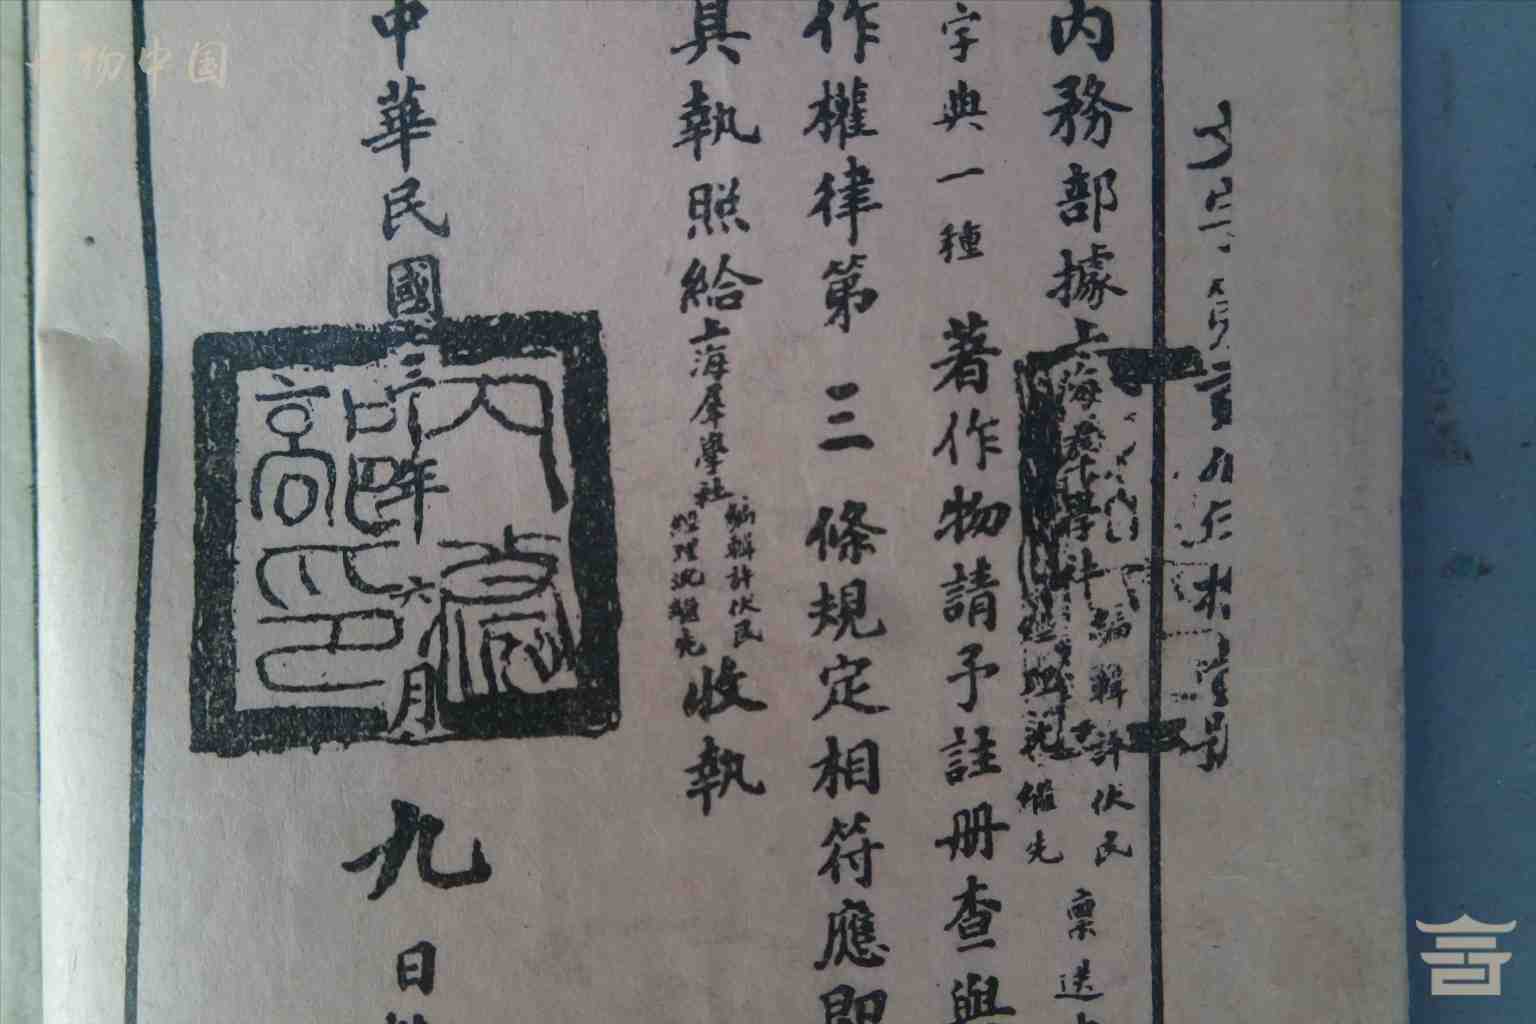 內務部據上海羣學社編輯許伏民經理沈繼先稟送
字典一種 著作物請予註册查與
作權律第三條規定相符應即
具執照給上海羣學社編輯許伏民經理沈繼先收執
中華民國十三年六月九日
內務部印
物中国